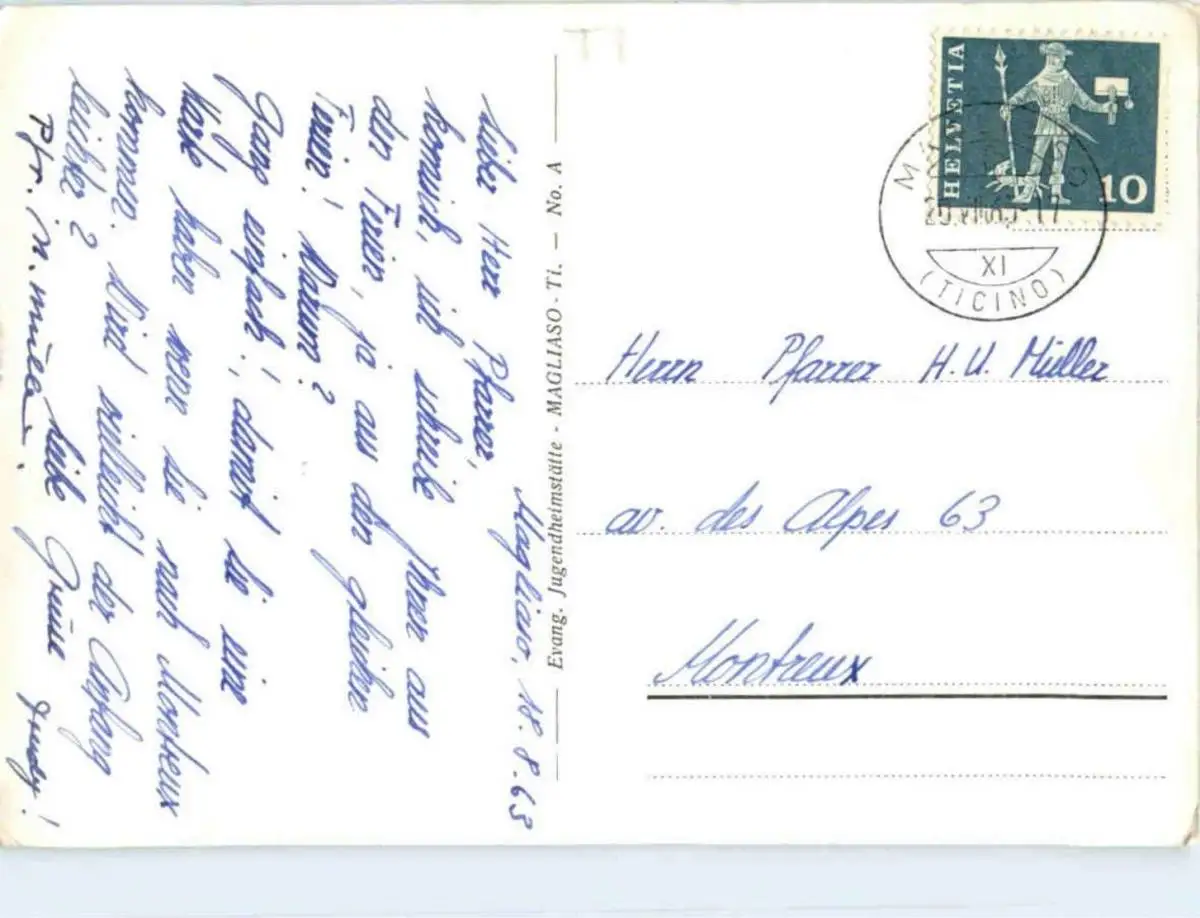 Magliaso, 18.8.63
Lieber Herr Pfarrer,
komisch, ich schreibe Ihnen aus
den Ferien, ja aus den gleichen
Ferien! Warum?
Ganz einfach!, damit Sie eine
Karte haben wenn Sie nach Montreux
kommen. Wird vielleicht der Anfang
leichter?
Liebe Grüsse Trudy!
Pfr. H. Müller.
Evang. Jugendheimstätte - MAGLIASO - Ti. — No. A
TI
HELVETIA
10
MAGLIASO
XI
(TICINO)
Herrn Pfarrer H. U. Müller
av. des Alpes 63
Montreux